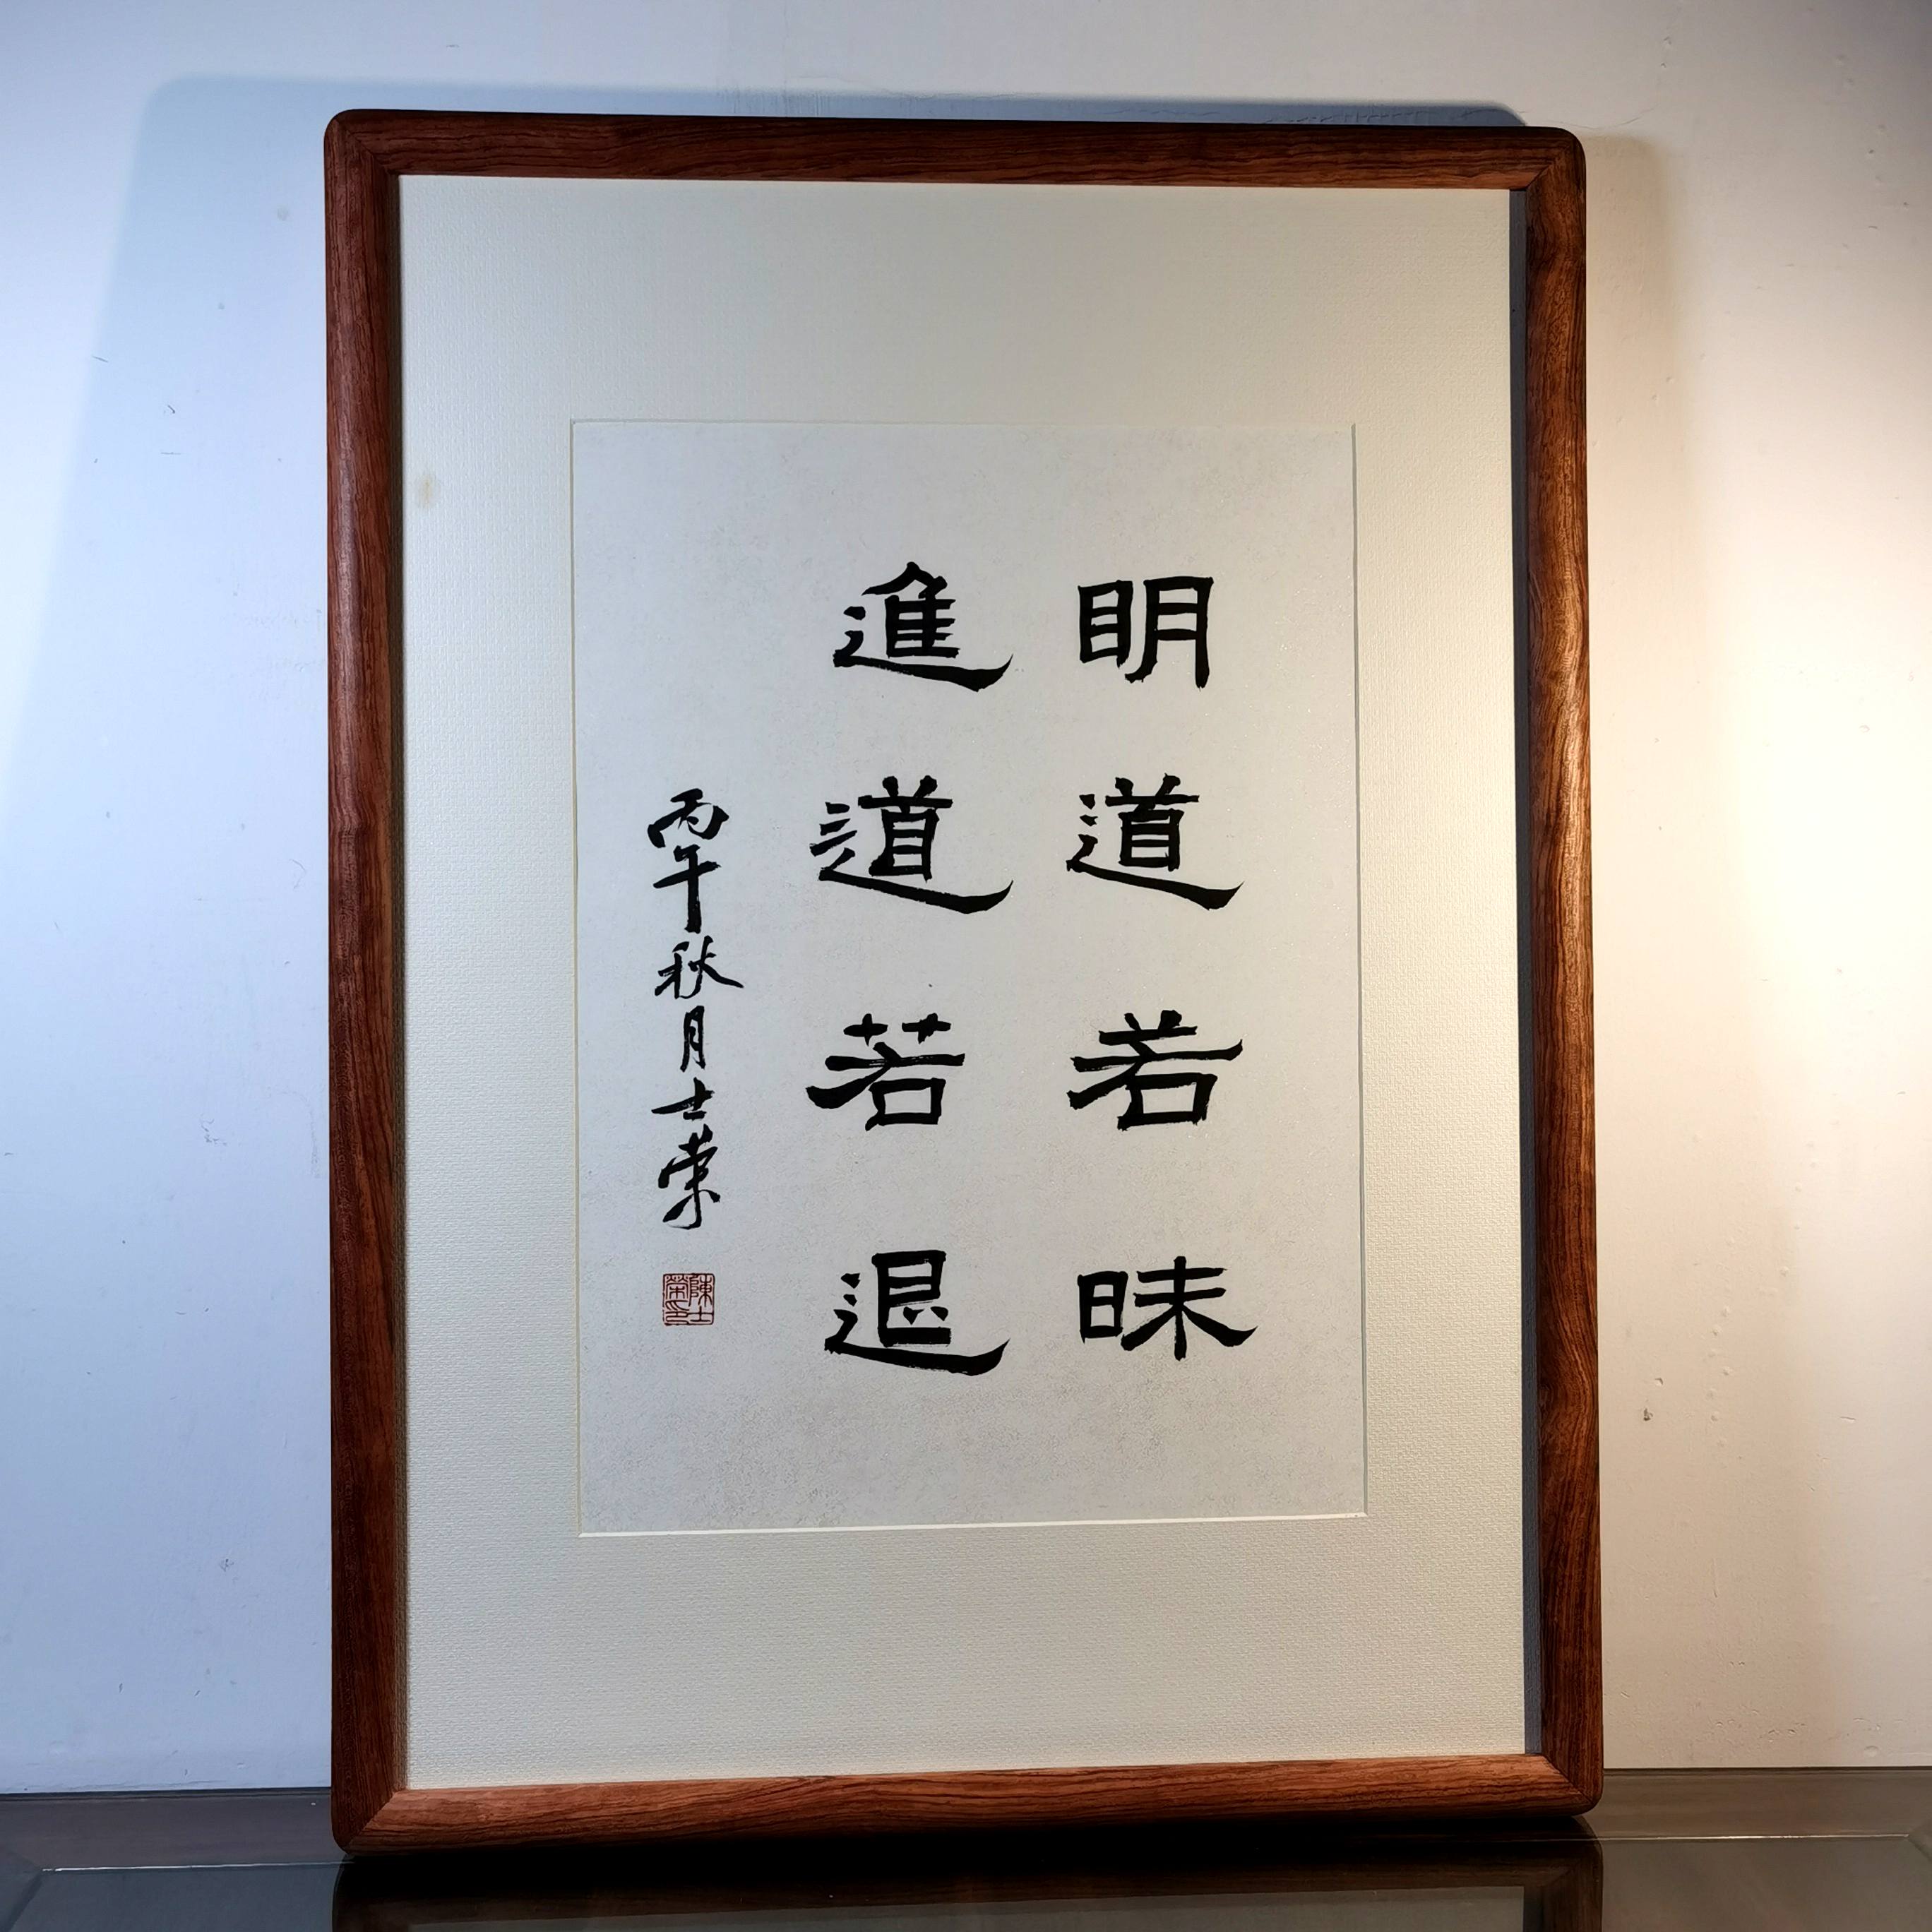 明道若昧
進道若退
丙午秋月士荣
陳士
榮印